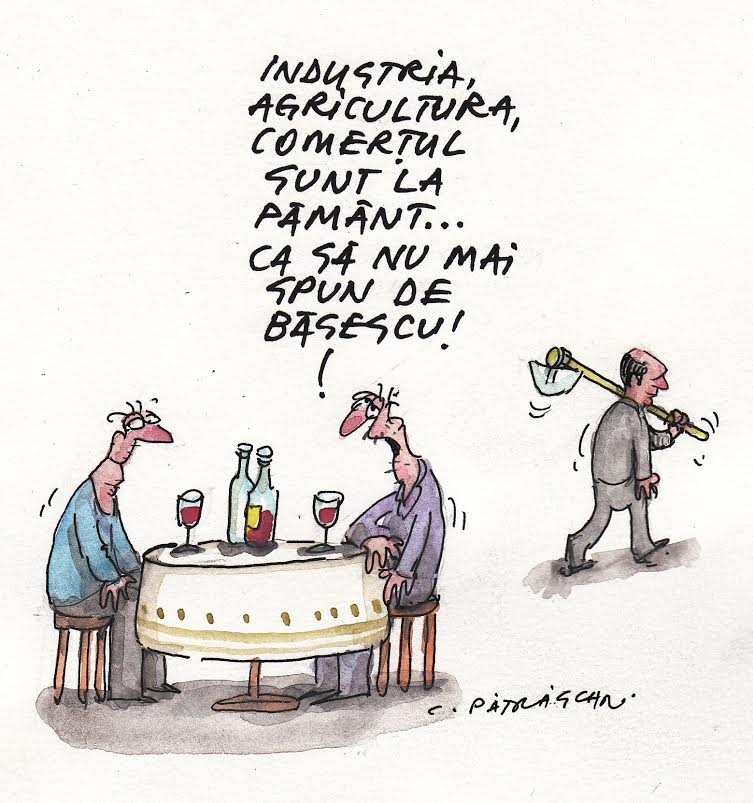 INDUSTRIA,
AGRICULTURA,
COMERȚUL
SUNT LA
PĂMÂNT...
CA SĂ NU MAI
SPUN DE
BĂSESCU!
!
C. PĂTRĂȘCAN.